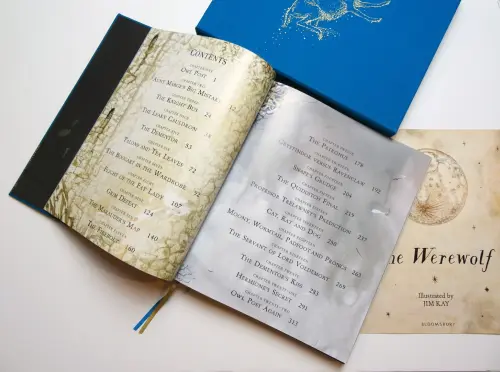 CONTENTS
CHAPTER ONE
OWL POST 1
CHAPTER TWO
AUNT MARGE'S BIG MISTAKE 12
CHAPTER THREE
THE KNIGHT BUS 24
CHAPTER FOUR
THE LEAKY CAULDRON
CHAPTER FIVE
THE DEMENTOR 53
CHAPTER SIX
TALONS AND TEA LEAVES 72
CHAPTER SEVEN
THE BOGGART IN THE WARDROBE 92
CHAPTER EIGHT
FLIGHT OF THE FAT LADY 107
CHAPTER NINE
GRIM DEFEAT 124
CHAPTER TEN
THE MARAUDER'S MAP 140
CHAPTER ELEVEN
THE FIREBOLT 160
CHAPTER TWELVE
THE PATRONUS 178
CHAPTER THIRTEEN
GRYFFINDOR VERSUS RAVENCLAW 192
CHAPTER FOURTEEN
SNAPE'S GRUDGE 204
CHAPTER FIFTEEN
THE QUIDDITCH FINAL 219
CHAPTER SIXTEEN
PROFESSOR TRELAWNEY'S PREDICTION 235
CHAPTER SEVENTEEN
CAT, RAT AND DOG 250
CHAPTER EIGHTEEN
MOONY, WORMTAIL, PADFOOT AND PRONGS
CHAPTER NINETEEN
THE SERVANT OF LORD VOLDEMORT 269
CHAPTER TWENTY
THE DEMENTOR'S KISS 283
CHAPTER TWENTY-ONE
HERMIONE'S SECRET 291
CHAPTER TWENTY-TWO
OWL POST AGAIN 315
he Werewolf
Illustrated by
JIM KAY
BLOOMSBURY